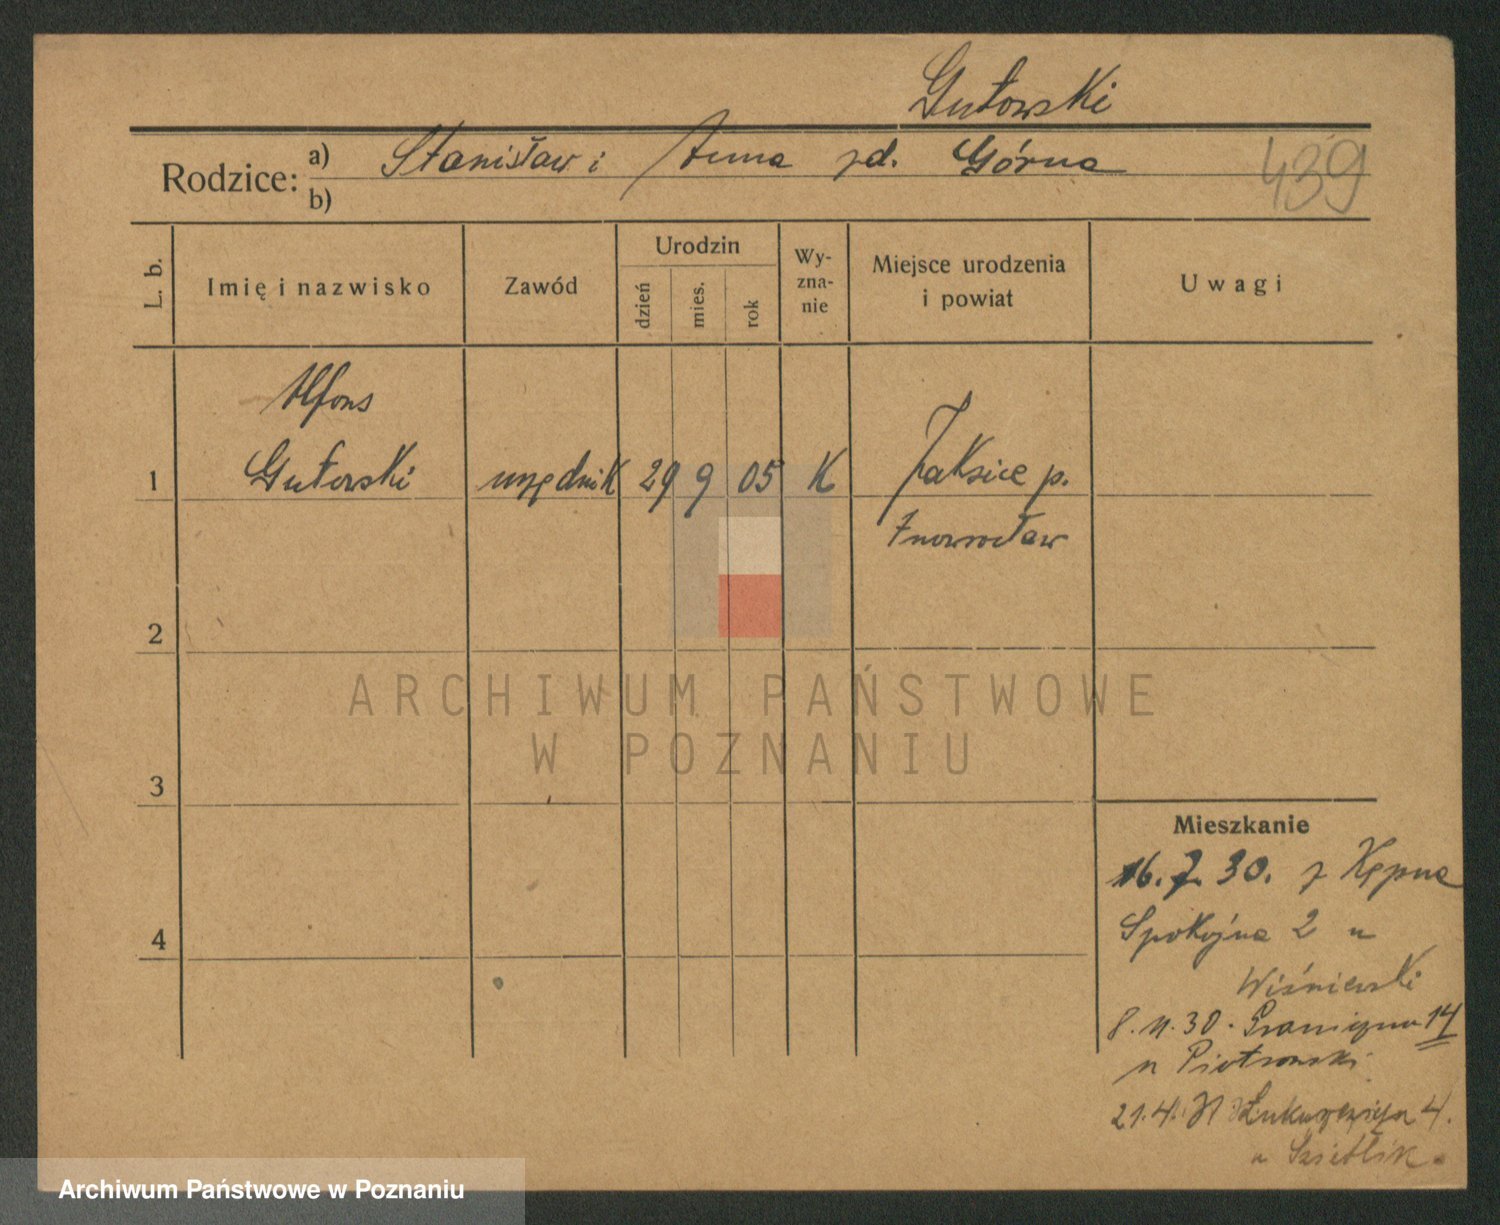 Gutowski
Rodzice: a) Stanisław i Anna zd. Górna
b)
439
L. b.
Imię i nazwisko
Zawód
Urodzin
dzień
mies.
rok
Wy-
zna-
nie
Miejsce urodzenia
i powiat
Uwagi
Alfons
1 Gutowski urzędnik 29 9 05 K Jaksice p.
Inowrocław
2
ARCHIWUM PAŃSTWOWE
W POZNANIU
3
Mieszkanie
16. 7. 30. z Kępna
4
Spokojna 2 u
Wiśniewski
8. 11. 30. Graniczna 14
u Piotrowski
21. 4. 31 Łukaszewicza 4.
u
Archiwum Państwowe w Poznaniu